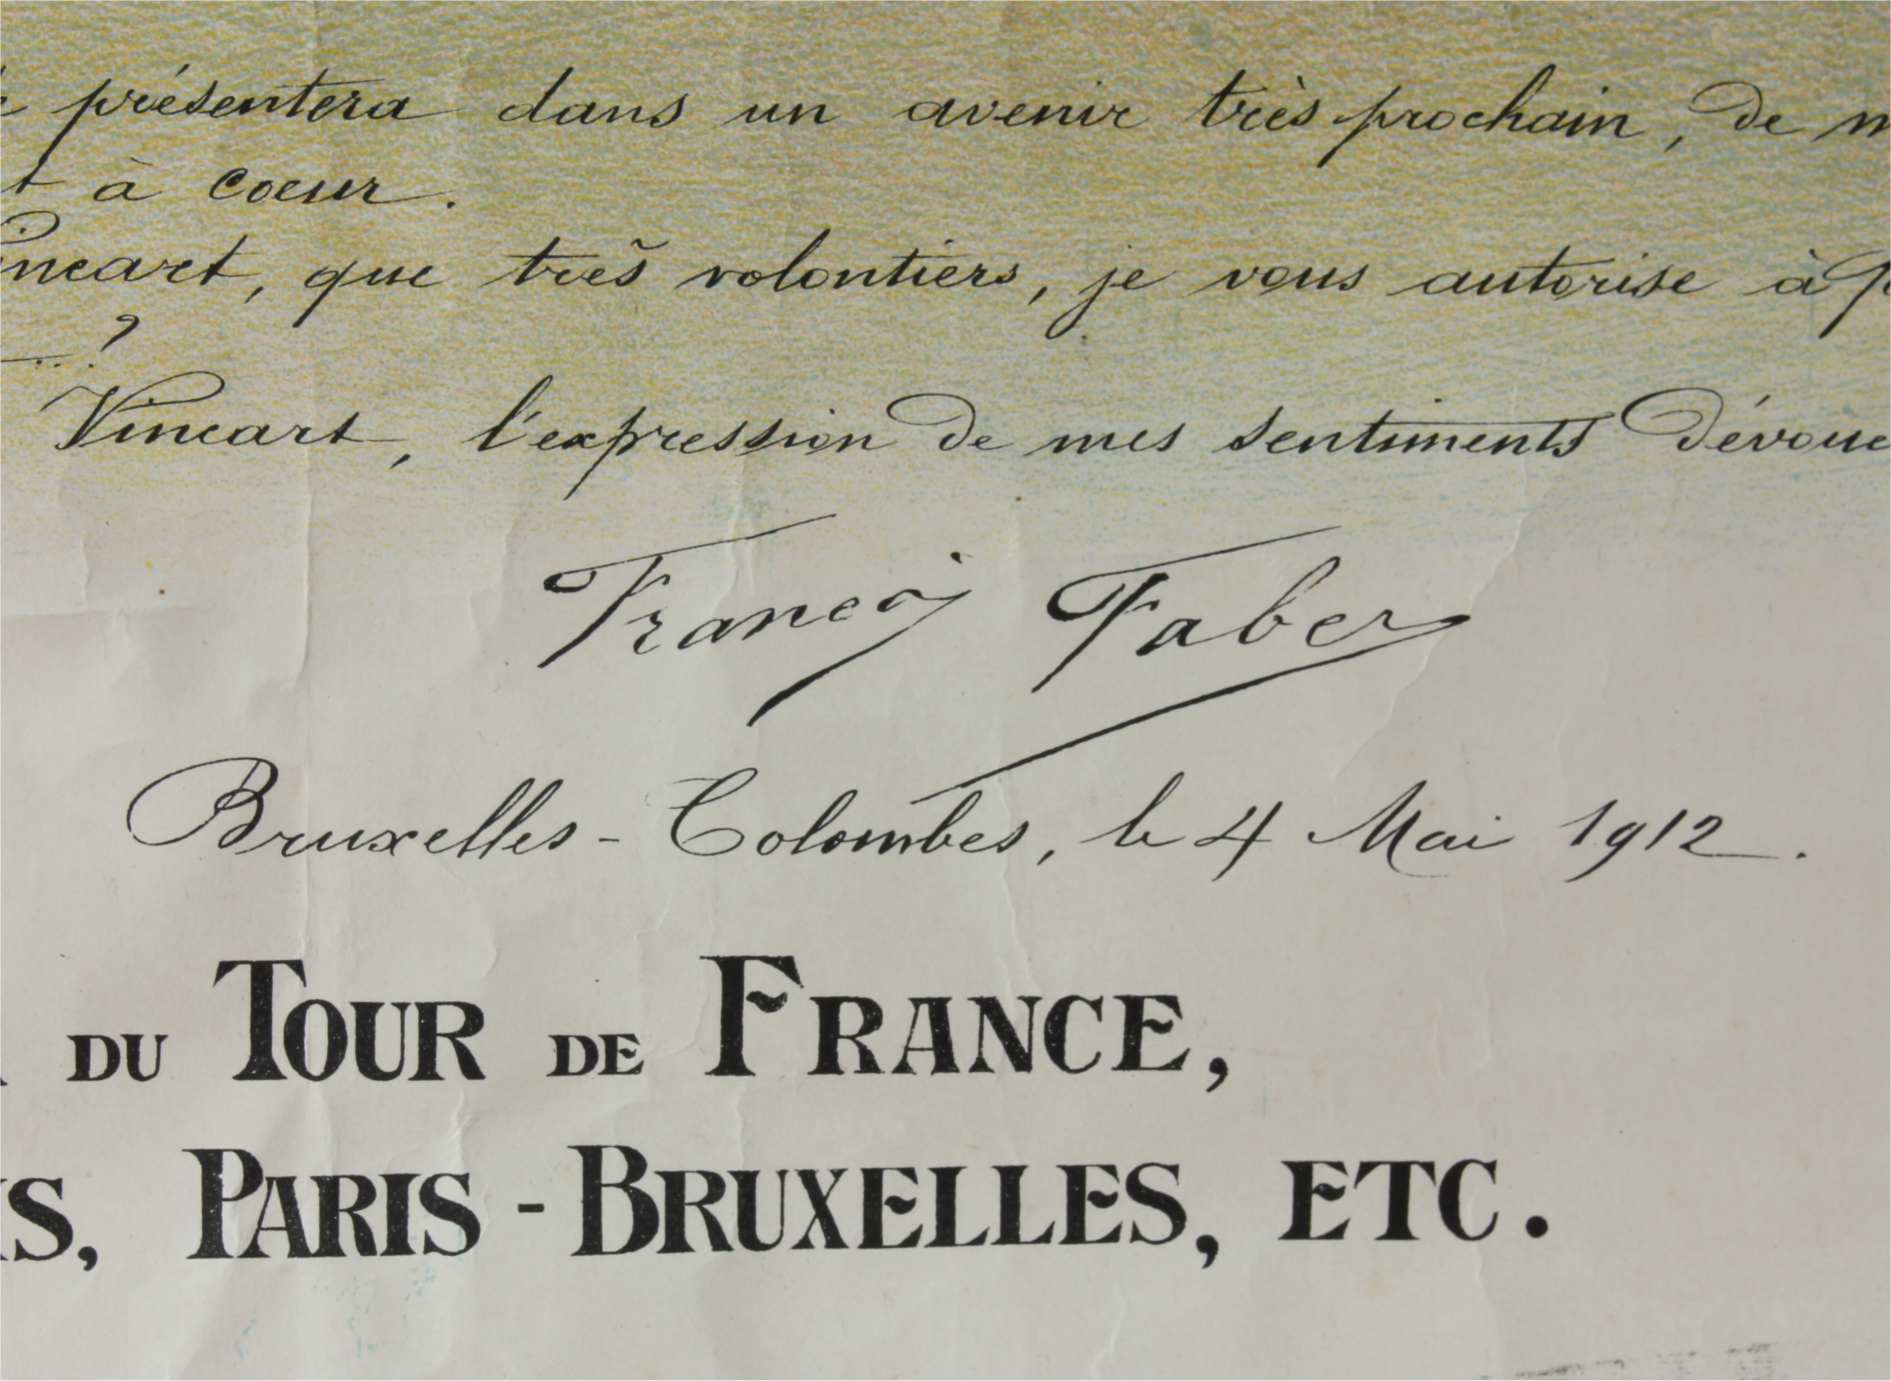 présentera dans un avenir très prochain, de
à coeur.
que très volontiers, je vous autorise à
...?
Vincart, l'expression de mes sentiments
François Faber
Bruxelles - Colombes, le 4 Mai 1912.
DU TOUR DE FRANCE,
PARIS - BRUXELLES, ETC.